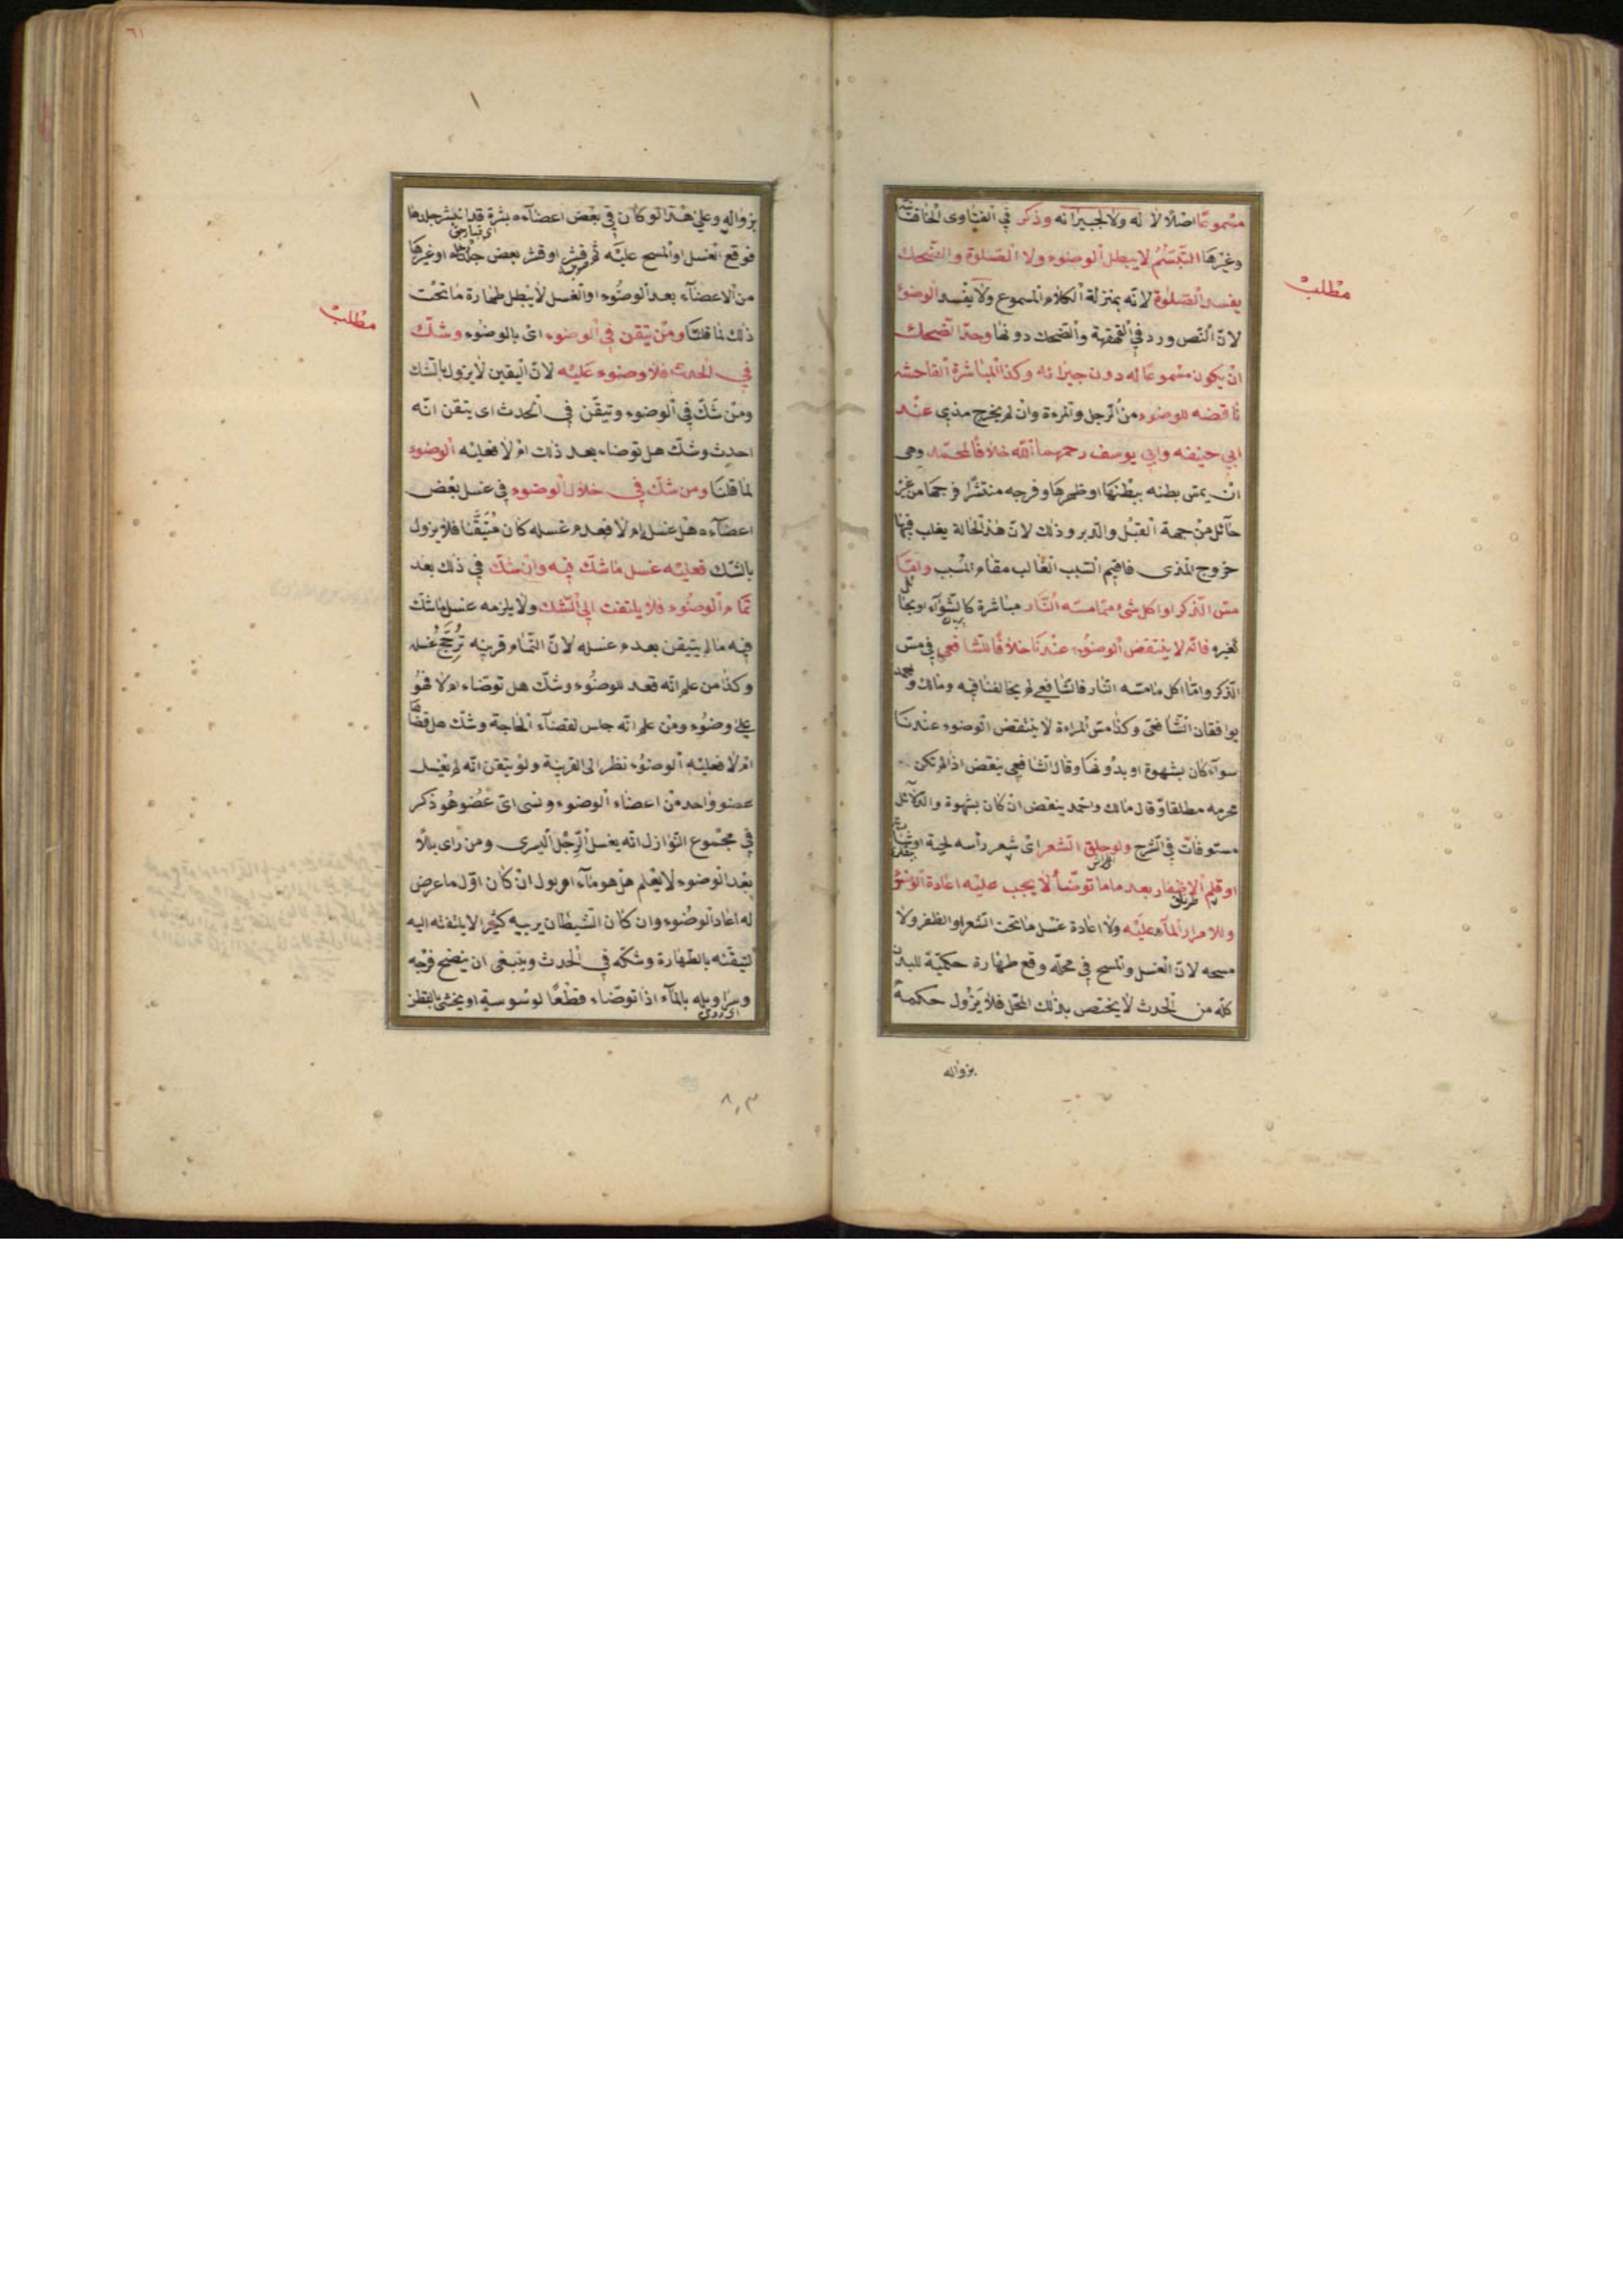 مسموعا اصلا لا له ولا لجيرانه وذكر في الفتاوى الخاقانية
وغيرها التبسم لا يبطل الوضوء ولا الصلوة والضحك
مطلب
يفسد الصلوة لانه بمنزلة الكلام المسموع ولا يفسد الوضوء
لان النص ورد في القهقهة والضحك دونها وحد الضحك
ان يكون مسموعا له دون جيرانه وكذا المباشرة الفاحشه
ناقضه للوضوء من الرجل والمرءة وان لم يخرج مذي عند
ابي حنيفه وابي يوسف رحمهما الله خلافا لمحمد وهي
ان يمس بطنه ببطنها او ظهرها وفرجه منتشرا فرجها من غير
حآئل من جهة القبل والدبر وذلك لان هذه الحالة يغلب فيها
خروج المذى فاقيم السبب الغالب مقام المسبب واما
مس الذكر او اكل شئ مما مسته النار مباشرة كالشوآء او بحائل
كغيره فانه لا ينتقض الوضوء عندنا خلافا للشافعي في مس
الذكر واما اكل ما مسته النار فالشافعي لم يخالفنا فيه ومالك واحمد
يوافقان الشافعى وكذا مس المراءة لا ينتقض الوضوء عندنا
سوآء كان بشهوة او بدونها وقال الشافعي ينقض اذا لم تكن
محرمه مطلقا وقال مالك واحمد ينقض ان كان بشهوة والدلآئل
مستوفات في الشرح ولو حلق الشعر اى شعر رأسه لحية او شاربه
او قلم الاظفار بعد ما ما توضأ لا يجب عليه اعادة الوضوء
ولا امرار المآء عليه ولا اعادة غسل ما تحت الشعر او الظفر ولا
مسحه لان الغسل والمسح في محله وقع طهارة حكمية للبدن
كله من الحدث لا يختص بذلك المحل فلا يزول حكمه
بزواله
٦١
بزواله وعلى هذا لو كان في بعض اعضآءه بثرة قد انتبر جلدها
فوقع الغسل او المسح عليه ثم قشر او قشر بعض جلد رجله او غيرها
من الاعضآء بعد الوضوء او الغسل لا يبطل طهارة ما تحت
مطلب
ذلك لما قلنا ومن تيقن في الوضوء اى بالوضوء وشك
في الحدث فلا وضوء عليه لان اليقين لا يزول بالشك
ومن شك في الوضوء وتيقن في الحدث اى يتقن انه
احدث وشك هل توضاء بعد ذلك ام لا فعليه الوضوء
لما قلنا ومن شك في خلال الوضوء في غسل بعض
اعضآءه هل غسل ام لا فعدم غسله كان متيقنا فلا يزول
بالشك فعليه غسل ما شك فيه وان شك في ذلك بعد
تمام الوضوء فلا يلتفت الى الشك ولا يلزمه غسل ما شك
فيه ما لم يتيقن بعدم غسله لان التمام قرينه ترجح غسله
وكذا من علم انه قعد للوضوء وشك هل توضاء ام لا فهو
على وضوء ومن علم انه جلس لقضآء الحاجة وشك هل قضاها
ام لا فعليه الوضوء نظر الى القرينة ولو يتقن انه لم يغسل
عضو واحد من اعضاء الوضوء ونسى اى عضو هو ذكر
في مجموع النوازل انه يغسل الرجل اليسرى ومن راى بللا
بعد الوضوء لا يعلم هل هو مآء ام بول ان كان اول ما عرض
له اعاد الوضوء وان كان الشيطان يريبه كثيرا لا يلتفته اليه
لتيقنه بالطهارة وشكه في الحدث وينبغى ان ينضح فرجه
وسراويله بالمآء اذا توضاء قطعا لوسوسة او يحشى بالقطن
٨٠٣